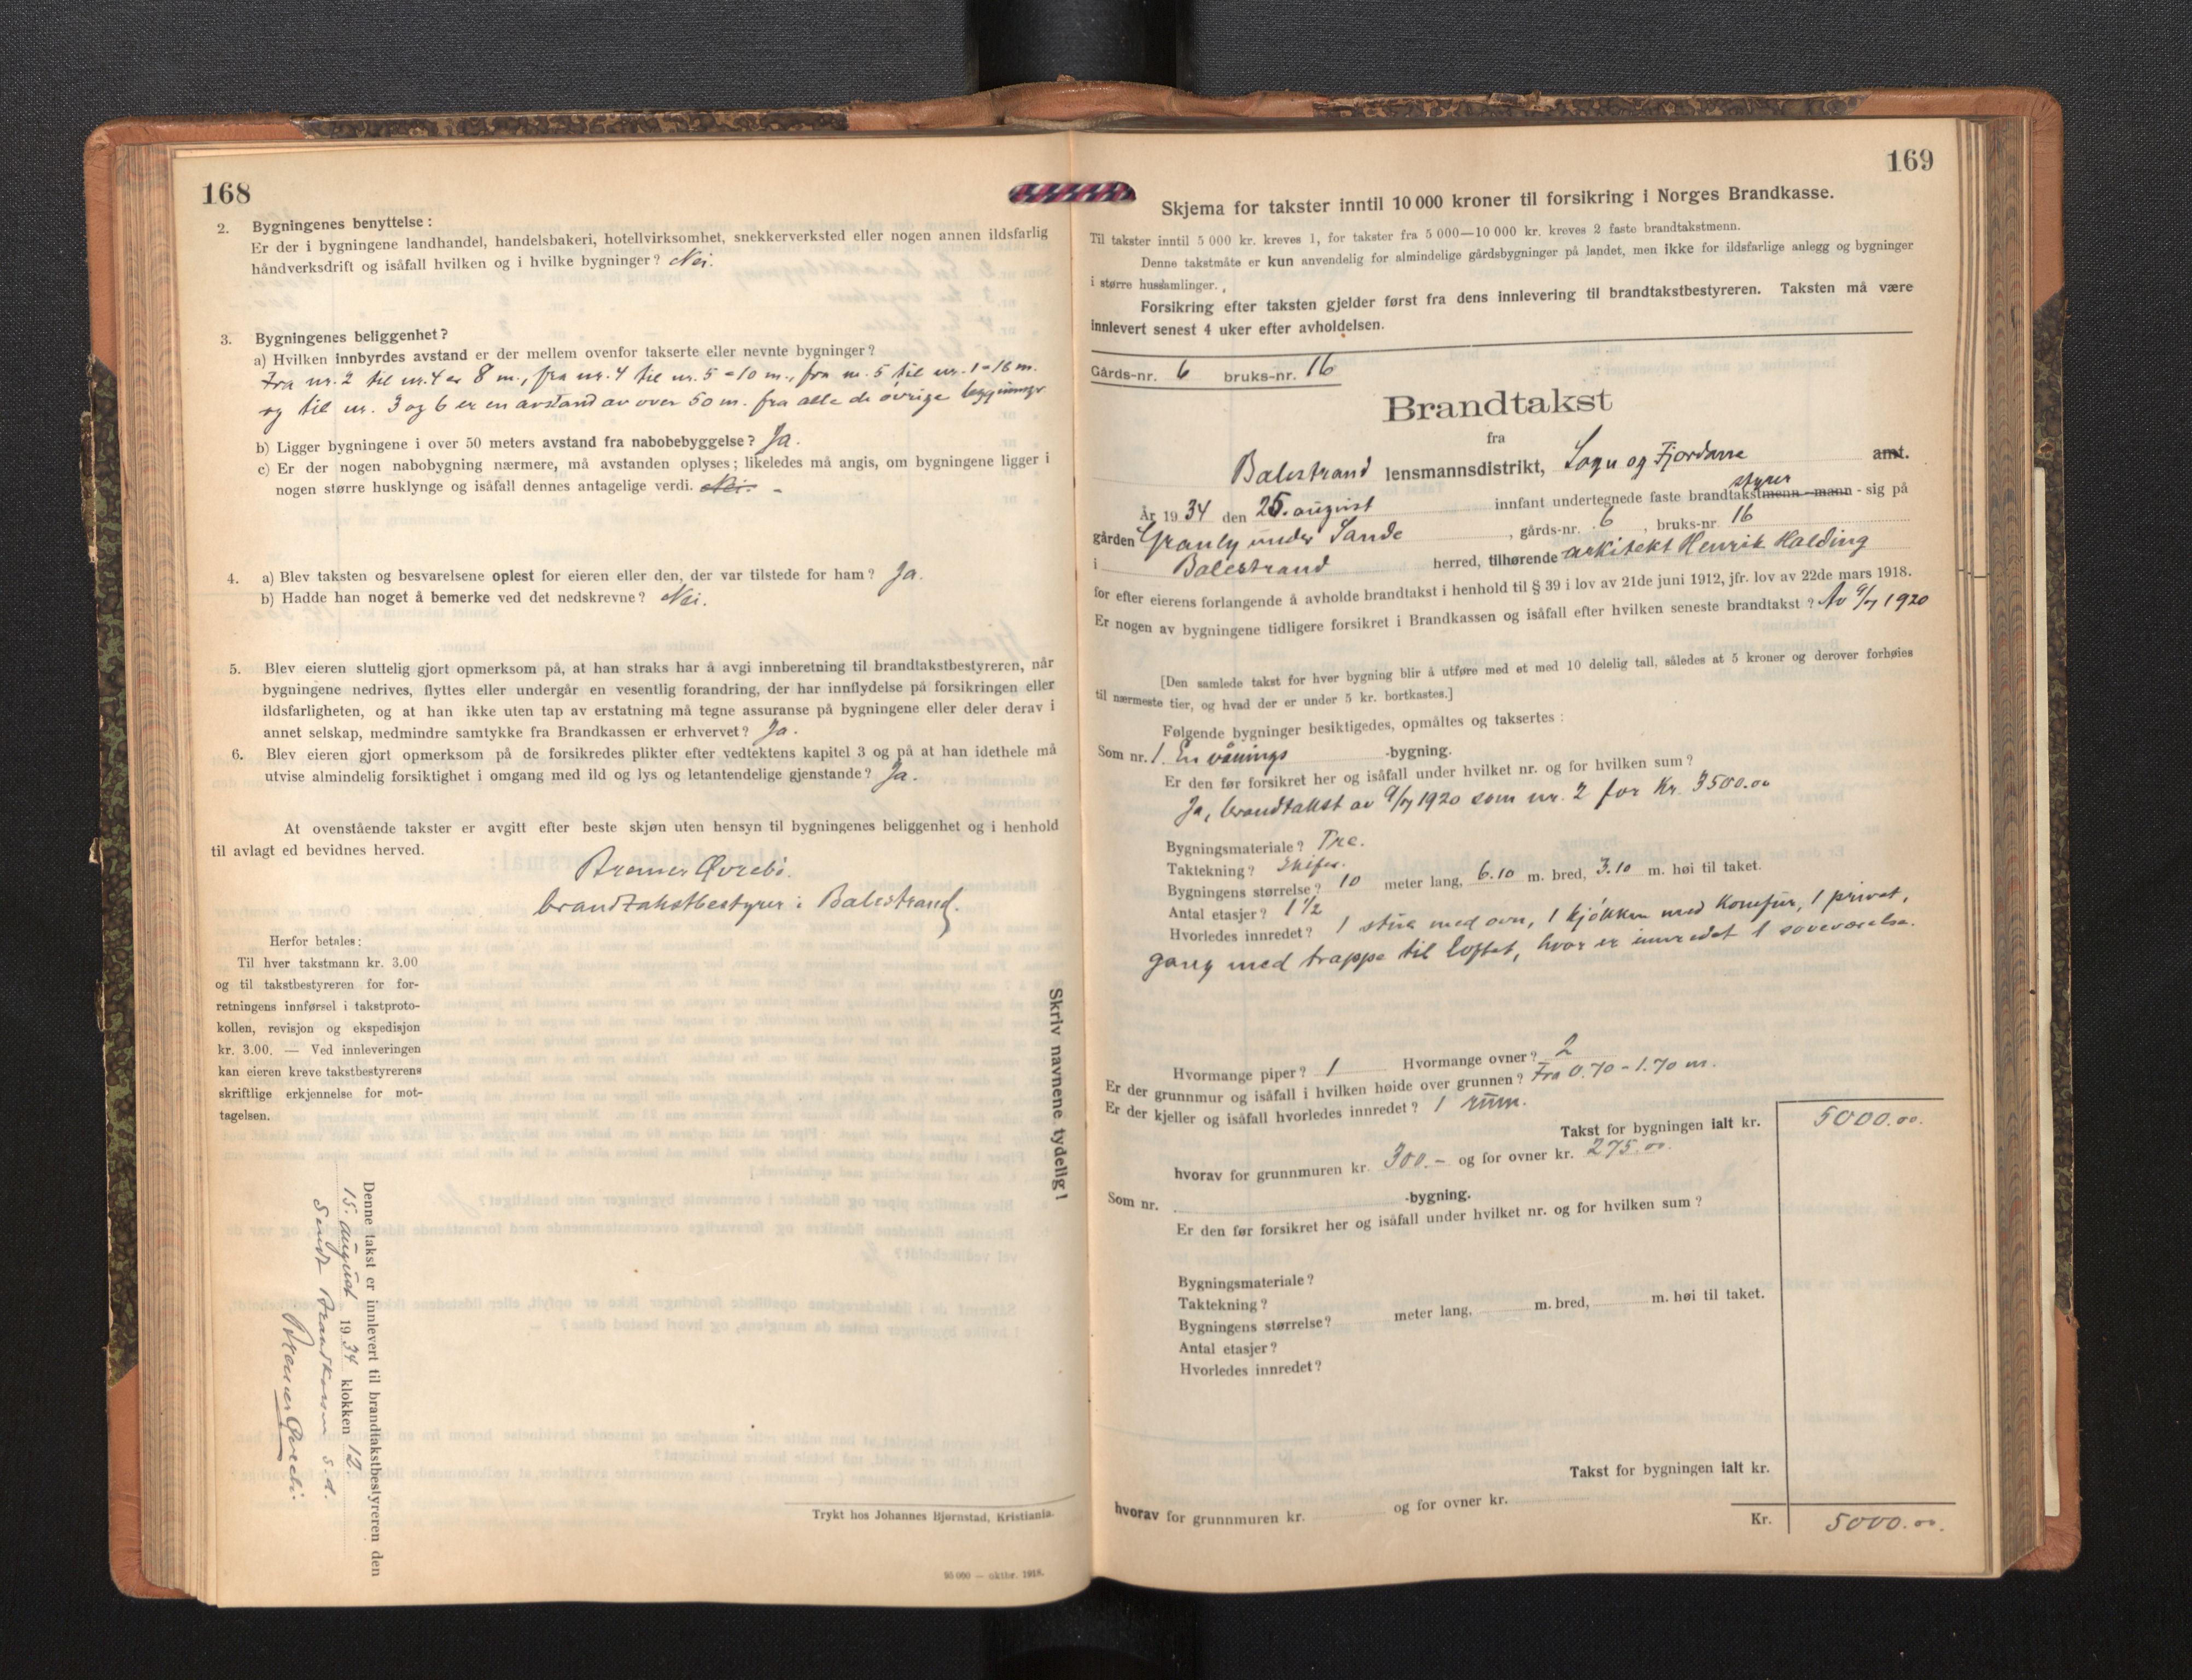 168
2. Bygningenes benyttelse :
Er der i bygningene landhandel, handelsbakeri, hotellvirksomhet, snekkerverksted eller nogen annen ildsfarlig
håndverksdrift og isåfall hvilken og i hvilke bygninger? Nei.
3. Bygningenes beliggenhet?
a) Hvilken innbyrdes avstand er der mellem ovenfor takserte eller nevnte bygninger?
Fra nr. 2 til nr. 4 er 8 m., fra nr. 4 til nr. 5 = 10 m., fra nr. 5 til nr. 1 = 16 m.
og til nr. 3 og 6 er en avstand av over 50 m. fra alle de övrige bygninger
b) Ligger bygningene i over 50 meters avstand fra nabobebyggelse? Ja.
c) Er der nogen nabobygning nærmere, må avstanden oplyses; likeledes må angis, om bygningene ligger i
nogen større husklynge og isåfall dennes antagelige verdi. Nei. -
4. a) Blev taksten og besvarelsene oplest for eieren eller den, der var tilstede for ham? Ja.
b) Hadde han noget å bemerke ved det nedskrevne? Nei.
5. Blev eieren sluttelig gjort opmerksom på, at han straks har å avgi innberetning til brandtakstbestyreren, når
bygningene nedrives, flyttes eller undergår en vesentlig forandring, der har innflydelse på forsikringen eller
ildsfarligheten, og at han ikke uten tap av erstatning må tegne assuranse på bygningene eller deler derav i
annet selskap, medmindre samtykke fra Brandkassen er erhvervet? Ja.
6. Blev eieren gjort opmerksom på de forsikredes plikter efter vedtektens kapitel 3 og på at han idethele må
utvise almindelig forsiktighet i omgang med ild og lys og letantendelige gjenstande? Ja.
At ovenstående takster er avgitt efter beste skjøn uten hensyn til bygningenes beliggenhet og i henhold
til avlagt ed bevidnes herved.
Bremer Øvrebö.
brandtakstbestyrer i Balestrand.
Herfor betales:
Til hver takstmann kr. 3.00
og til takstbestyreren for for-
retningens innførsel i takstproto-
kollen, revisjon og ekspedisjon
kr. 3.00. — Ved innleveringen
kan eieren kreve takstbestyrerens
skriftlige erkjennelse for mot-
tagelsen.
Skriv navnene tydelig!
Denne takst er innlevert til brandtakstbestyreren den
15. august 1934 klokken 12.
Sendt Brandkassen s. d.
Bremer Øvrebö.
Trykt hos Johannes Bjørnstad, Kristiania.
95 000 — oktbr. 1918.
169
Skjema for takster inntil 10 000 kroner til forsikring i Norges Brandkasse.
Til takster inntil 5 000 kr. kreves 1, for takster fra 5 000—10 000 kr. kreves 2 faste brandtakstmenn.
Denne takstmåte er kun anvendelig for almindelige gårdsbygninger på landet, men ikke for ildsfarlige anlegg og bygninger
i større hussamlinger.
Forsikring efter taksten gjelder først fra dens innlevering til brandtakstbestyreren. Taksten må være
innlevert senest 4 uker efter avholdelsen.
Gårds-nr. 6 bruks-nr. 16
Brandtakst
fra
Balestrand lensmannsdistrikt, Sogn og Fjordane amt.
styrer
År 1934 den 25. august innfant undertegnede faste brandtakstmenn -mann - sig på
gården Granly under Sande, gårds-nr. 6, bruks-nr. 16
i Balestrand herred, tilhørende arkitekt Henrik Halding
for efter eierens forlangende å avholde brandtakst i henhold til § 39 i lov av 21de juni 1912, jfr. lov av 22de mars 1918.
Er nogen av bygningene tidligere forsikret i Brandkassen og isåfall efter hvilken seneste brandtakst? Av 9/7 1920
[Den samlede takst for hver bygning blir å utføre med et med 10 delelig tall, således at 5 kroner og derover forhøies
til nærmeste tier, og hvad der er under 5 kr. bortkastes.]
Følgende bygninger besiktigedes, opmåltes og taksertes :
Som nr. 1. En vånings -bygning.
Er den før forsikret her og isåfall under hvilket nr. og for hvilken sum?
Ja, brandtakst av 9/7 1920 som nr. 2 for Kr. 3500.00
Bygningsmateriale? Tre.
Taktekning? Skifer.
Bygningens størrelse? 10 meter lang, 6.10 m. bred, 3.10 m. høi til taket.
Antal etasjer? 1½
Hvorledes innredet? 1 stue med ovn, 1 kjökken med komfur, 1 privet,
gang med trappe til loftet, hvor er innredet 1 soveværelse.
Hvormange piper? 1 Hvormange ovner? 2
Er der grunnmur og isåfall i hvilken høide over grunnen? Fra 0.70 - 1.70 m.
Er der kjeller og isåfall hvorledes innredet? 1 rum.
Takst for bygningen ialt kr. 5000.00.
hvorav for grunnmuren kr. 300.- og for ovner kr. 275.00.
Som nr. -bygning.
Er den før forsikret her og isåfall under hvilket nr. og for hvilken sum?
Bygningsmateriale?
Taktekning?
Bygningens størrelse? meter lang, m. bred, m. høi til taket.
Antal etasjer?
Hvorledes innredet?
Takst for bygningen ialt kr.
hvorav for grunnmuren kr. og for ovner kr.
Kr. 5000.00.